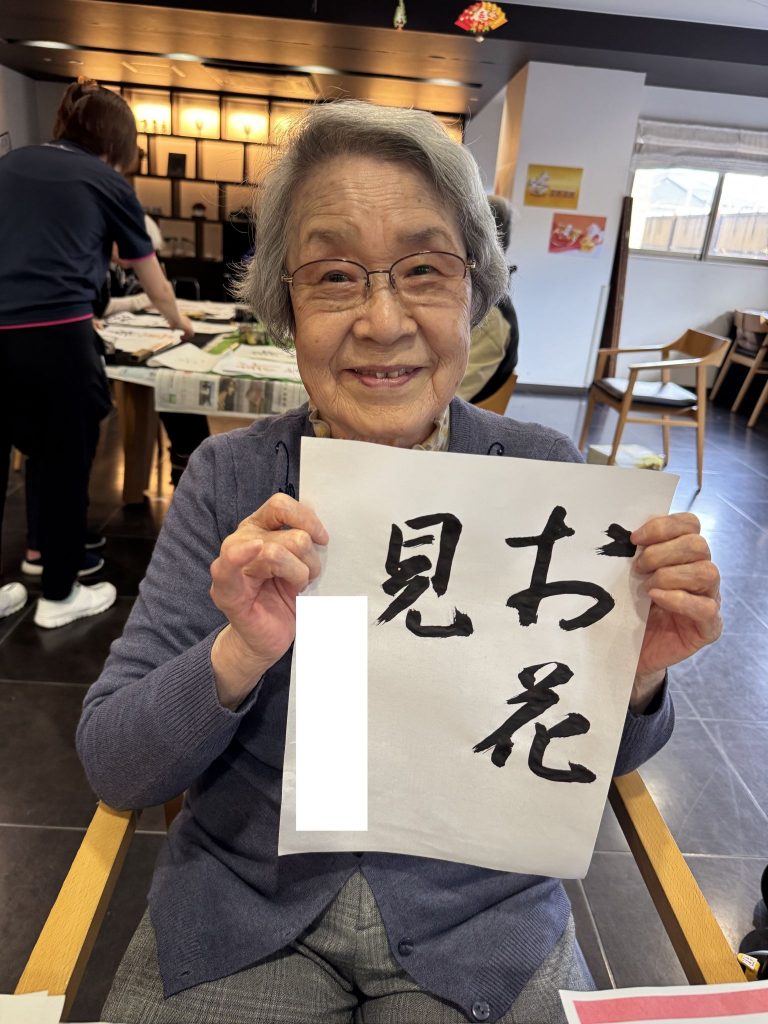 お花
見